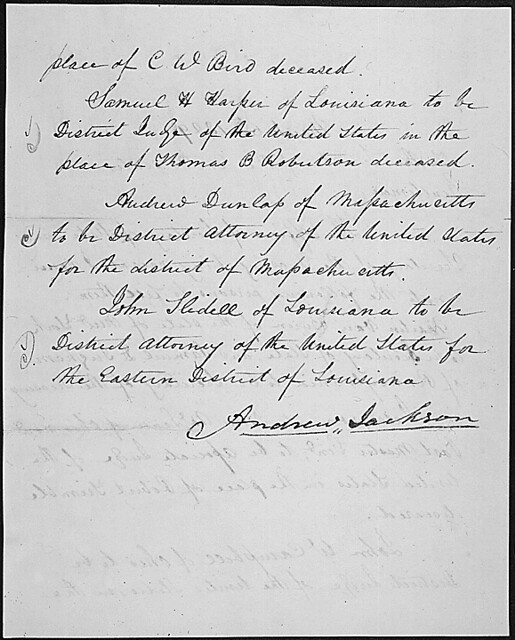 place of C W Bird deceased.
Samuel H Harper of Louisiana to be
District Judge of the United States in the
place of Thomas B Robertson deceased.
Andrew Dunlap of Massachusetts
to be District Attorney of the United States
for the district of Massachusetts.
John Slidell of Louisiana to be
District Attorney of the United States for
the Eastern District of Louisiana
Andrew Jackson